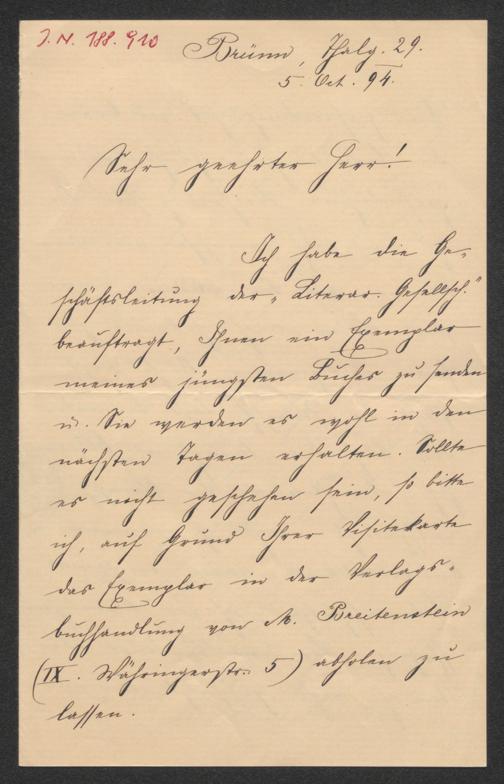 J. N. 188.910
Brünn, Thalg. 29.
5. Oct. 94.
Sehr geehrter Herr!
Ich habe die Ge-
schäftsleitung der „Literar. Gesellsch."
beauftragt, Ihnen ein Exemplar
meines jüngsten Buches zu senden
u. Sie werden es wohl in den
nächsten Tagen erhalten. Sollte
es nicht geschehen sein, so bitte
ich, auf Grund Ihrer Visitekarte
das Exemplar in der Verlags-
buchhandlung von M. Breitenstein
(IX. Währingerstr. 5) abholen zu
lassen.